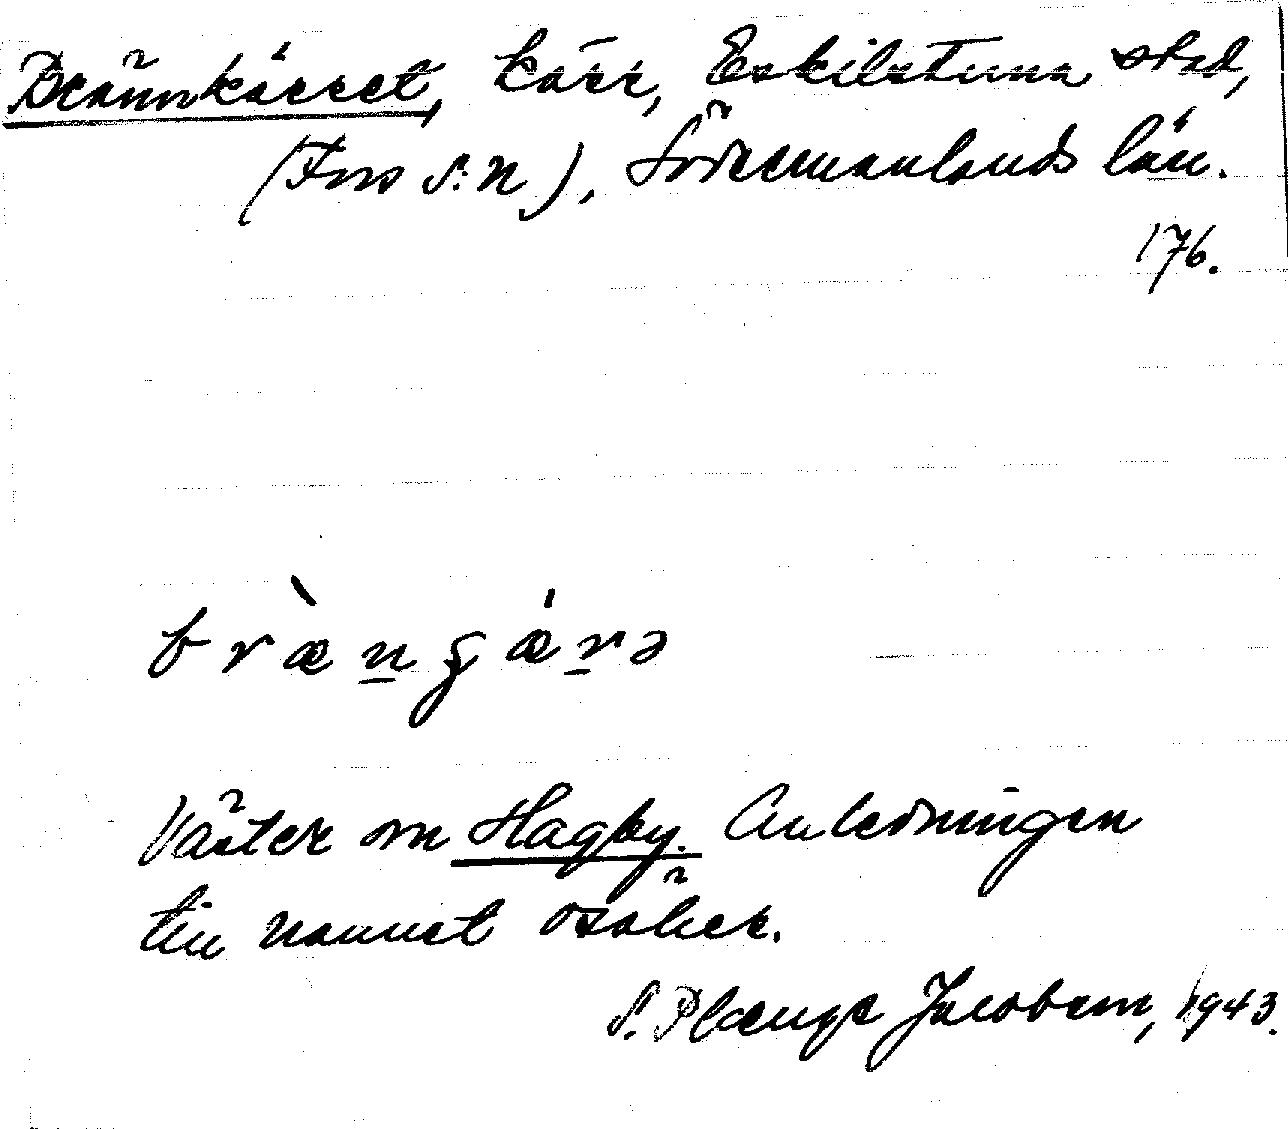 Brännkärret, kärr, Eskilstuna stad,
(Fors s:n), Södermanlands län.
176.
bræ̀n̲gǽr̲ə
Väster om Hagby. Anledningen
till namnet osäker.
S. Plænge Jacobson, 1943.